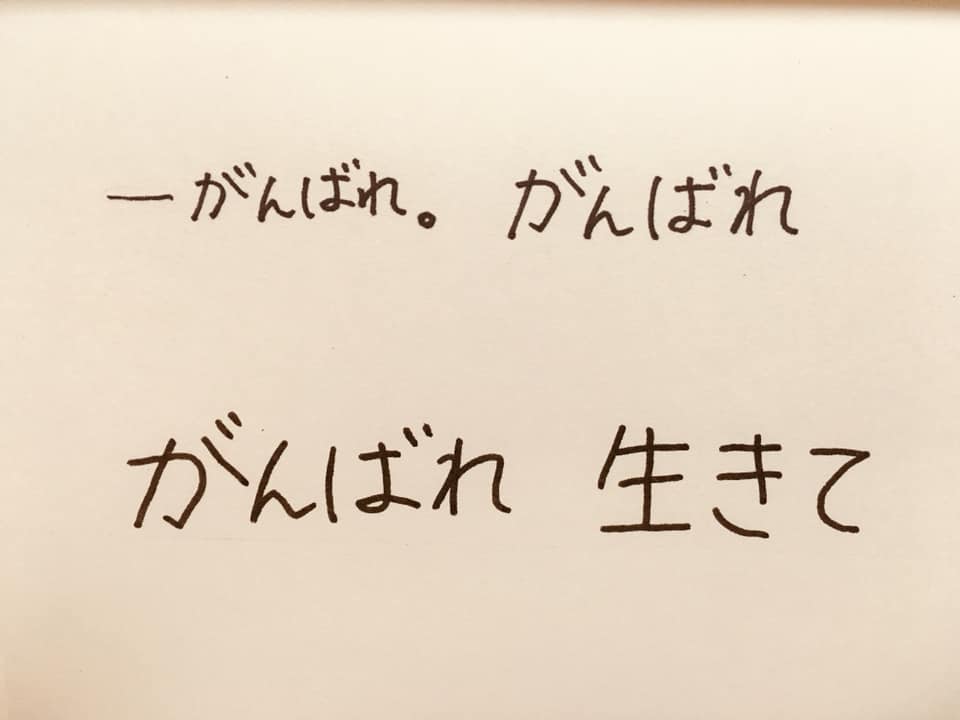 ―がんばれ。 がんばれ
がんばれ 生きて